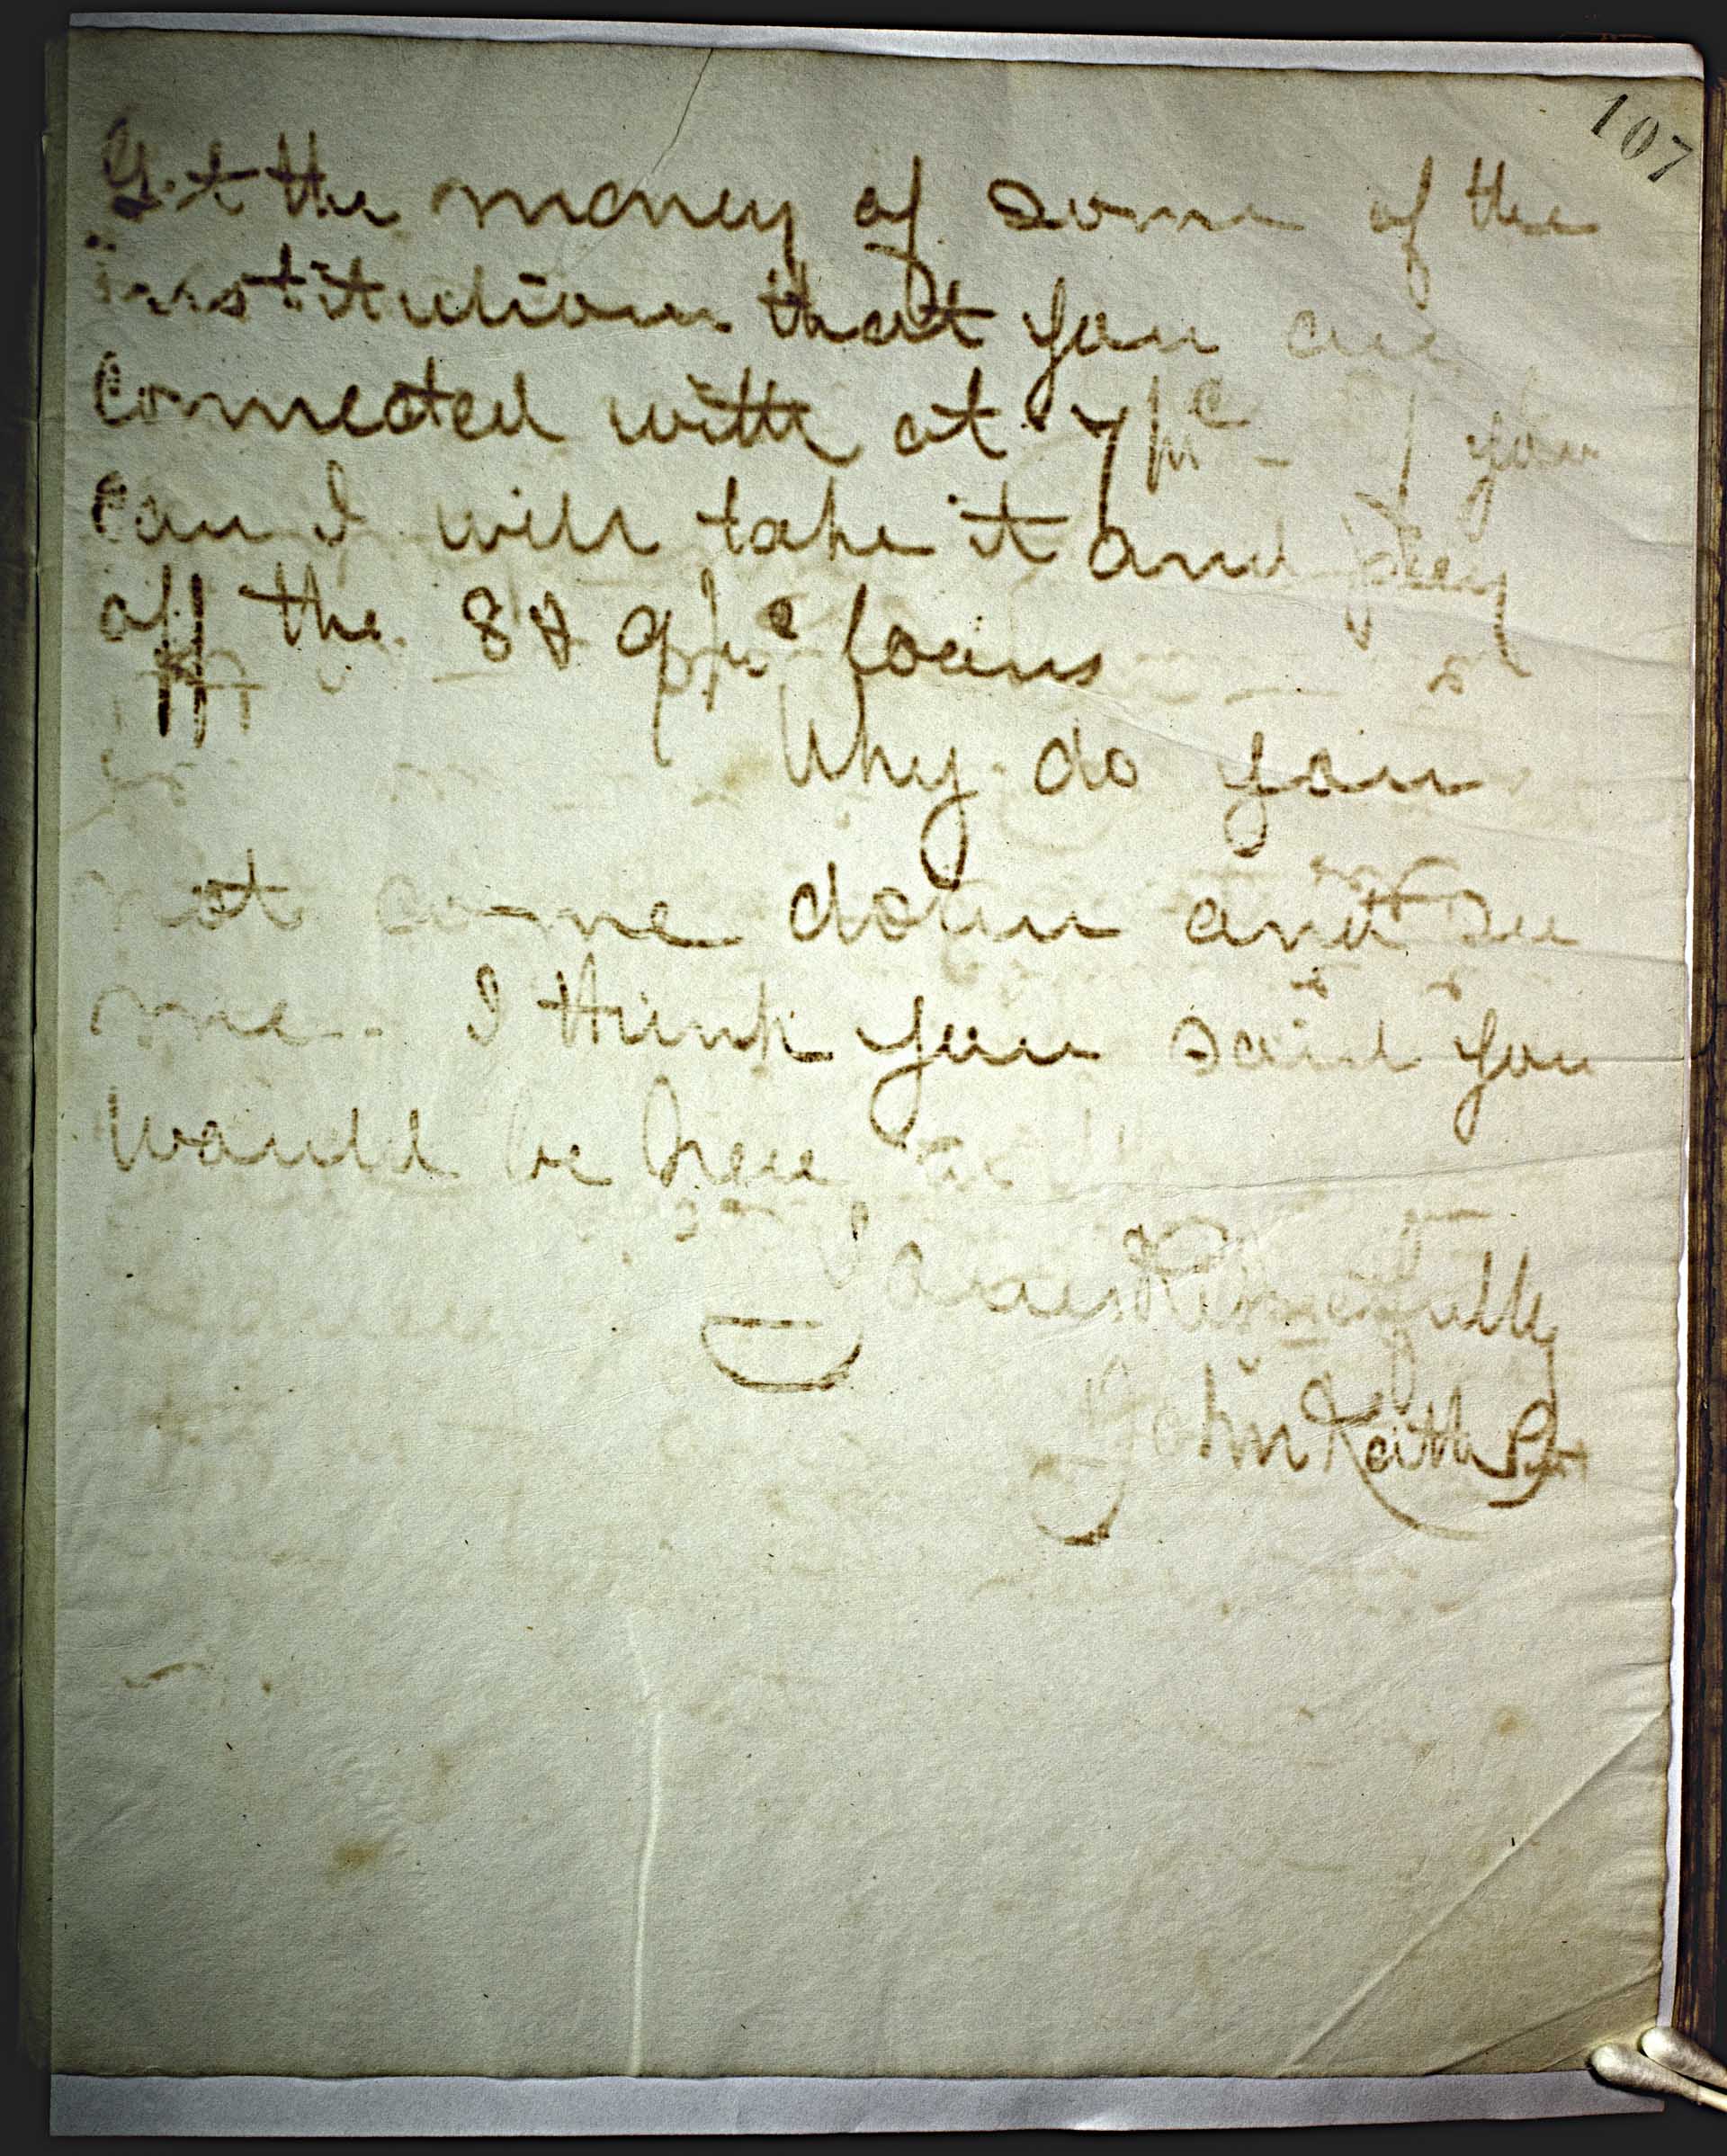 107
Get the money of some of the
institutions that you are
Connected with at 7 pr ct If you
Can I will take it and pay
off the 8 & 9 pr ct loans
Why do you
not come down and see
me. I think you said you
would be here
Yours Respectfully
John Keith Pst